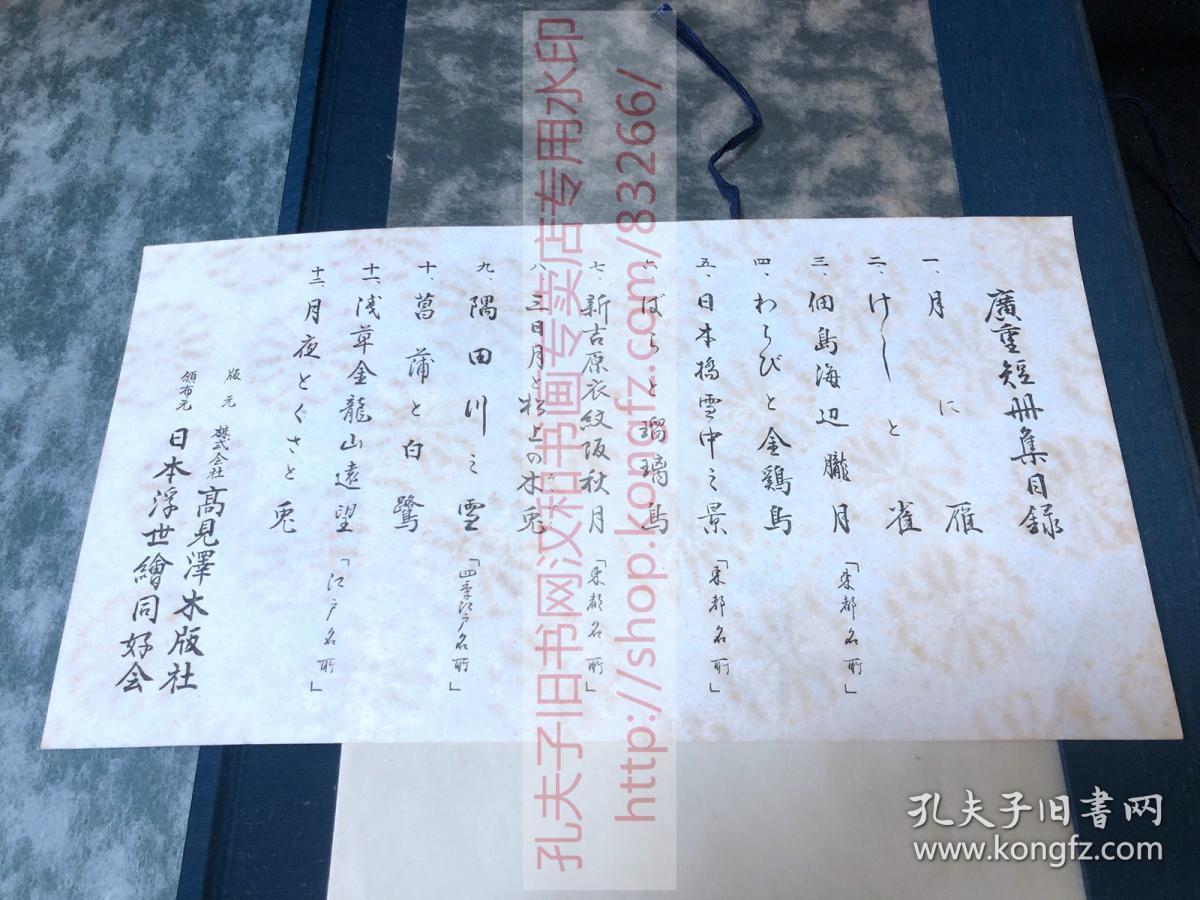 廣重短冊集目録
一、月に雁
二、けしと雀
三、佃島海辺朧月「東都名所」
四、わらびと金鶏鳥
五、日本橋雪中之景「東都名所」
六、ばらと瑠璃鳥
七、新吉原衣紋阪秋月「東都名所」
八、三日月と松上の木兎
九、隅田川之雪「四季江戸名所」
十、菖蒲と白鷺
十一、浅草金龍山遠望「江戸名所」
十二、月夜とくさと兎
版元 株式会社高見澤木版社
頒布元 日本浮世繪同好会
孔夫子旧书网汉和书画专卖店专用水印
http://shop.kongfz.com/83266/
孔夫子旧书网
www.kongfz.com